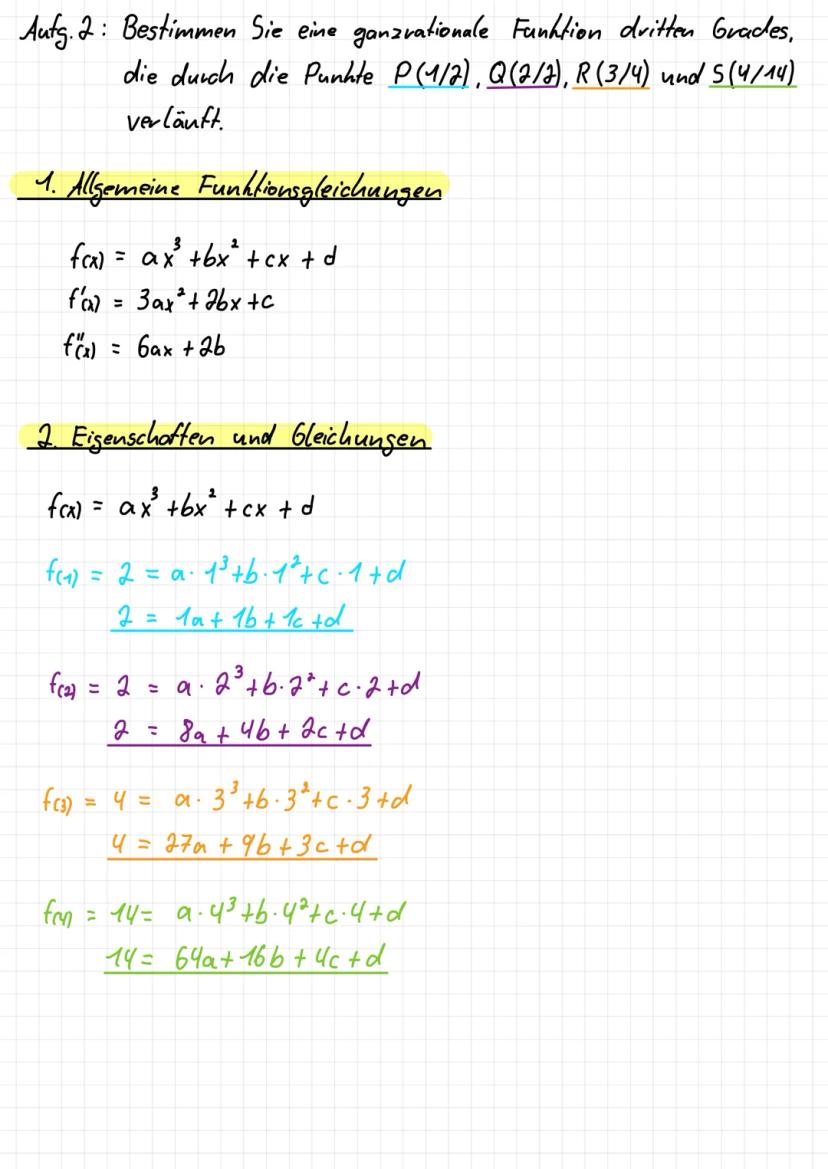 Aufg. 2: Bestimmen Sie eine ganzrationale Funktion dritten Grades,
die durch die Punkte P(1/2), Q(2/2), R(3/4) und S(4/14)
verläuft.
1. Allgemeine Funktionsgleichungen
f(x) = ax³ + bx² + cx + d
f'(x) = 3ax² + 2bx + c
f''(x) = 6ax + 2b
2. Eigenschaften und Gleichungen
f(x) = ax³ + bx² + cx + d
f(1) = 2 = a · 1³ + b · 1² + c · 1 + d
2 = 1a + 1b + 1c + d
f(2) = 2 = a · 2³ + b · 2² + c · 2 + d
2 = 8a + 4b + 2c + d
f(3) = 4 = a · 3³ + b · 3² + c · 3 + d
4 = 27a + 9b + 3c + d
f(4) = 14 = a · 4³ + b · 4² + c · 4 + d
14 = 64a + 16b + 4c + d